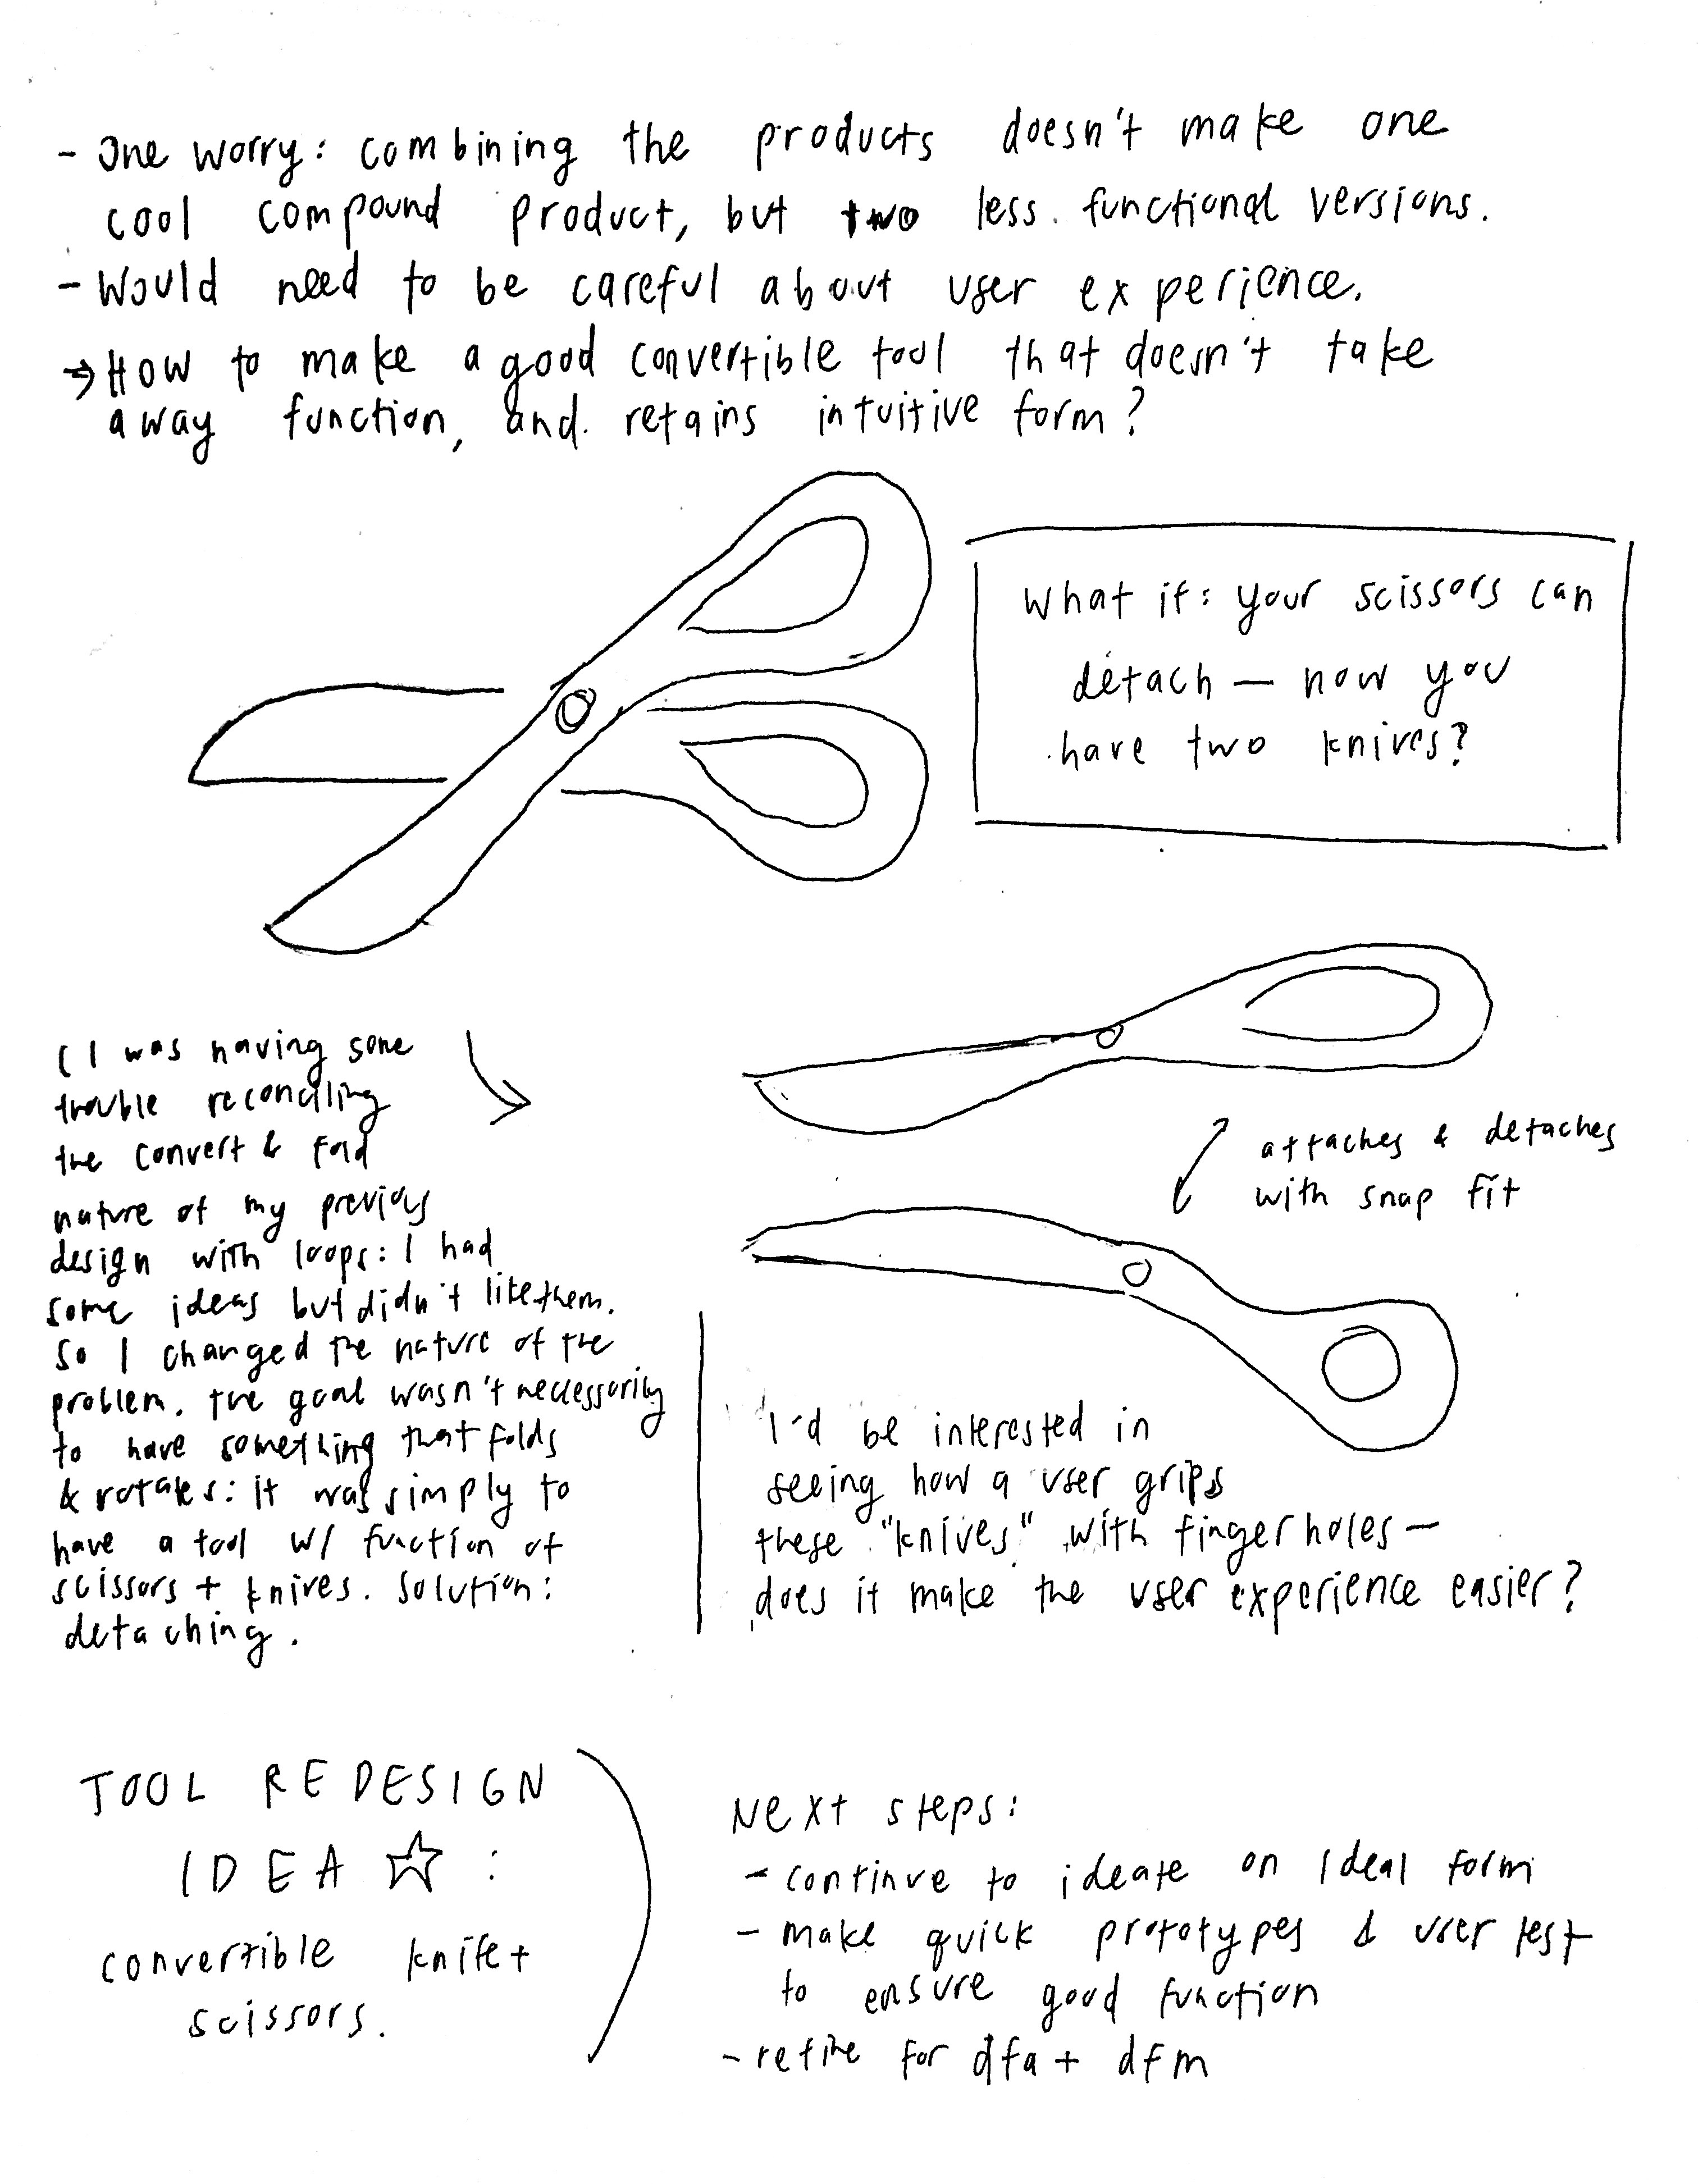 - One worry: combining the products doesn't make one
cool compound product, but two less functional versions.
- Would need to be careful about user experience.
→ How to make a good convertible tool that doesn't take
away function, and retains intuitive form?
What if: your scissors can
detach — now you
have two knives?
( I was having some
trouble reconciling
the convert & fold
nature of my previous
design with loops: I had
some ideas but didn't like them.
So I changed the nature of the
problem. The goal wasn't necessarily
to have something that folds
& rotates: it was simply to
have a tool w/ function of
scissors + knives. Solution:
detaching.
attaches & detaches
with snap fit
I'd be interested in
seeing how a user grips
these "knives" with finger holes —
does it make the user experience easier?
TOOL REDESIGN
IDEA ☆ :
convertible knife +
scissors.
Next steps:
- continue to ideate on ideal form
- make quick prototypes & user test
to ensure good function
- refine for dfa + dfm